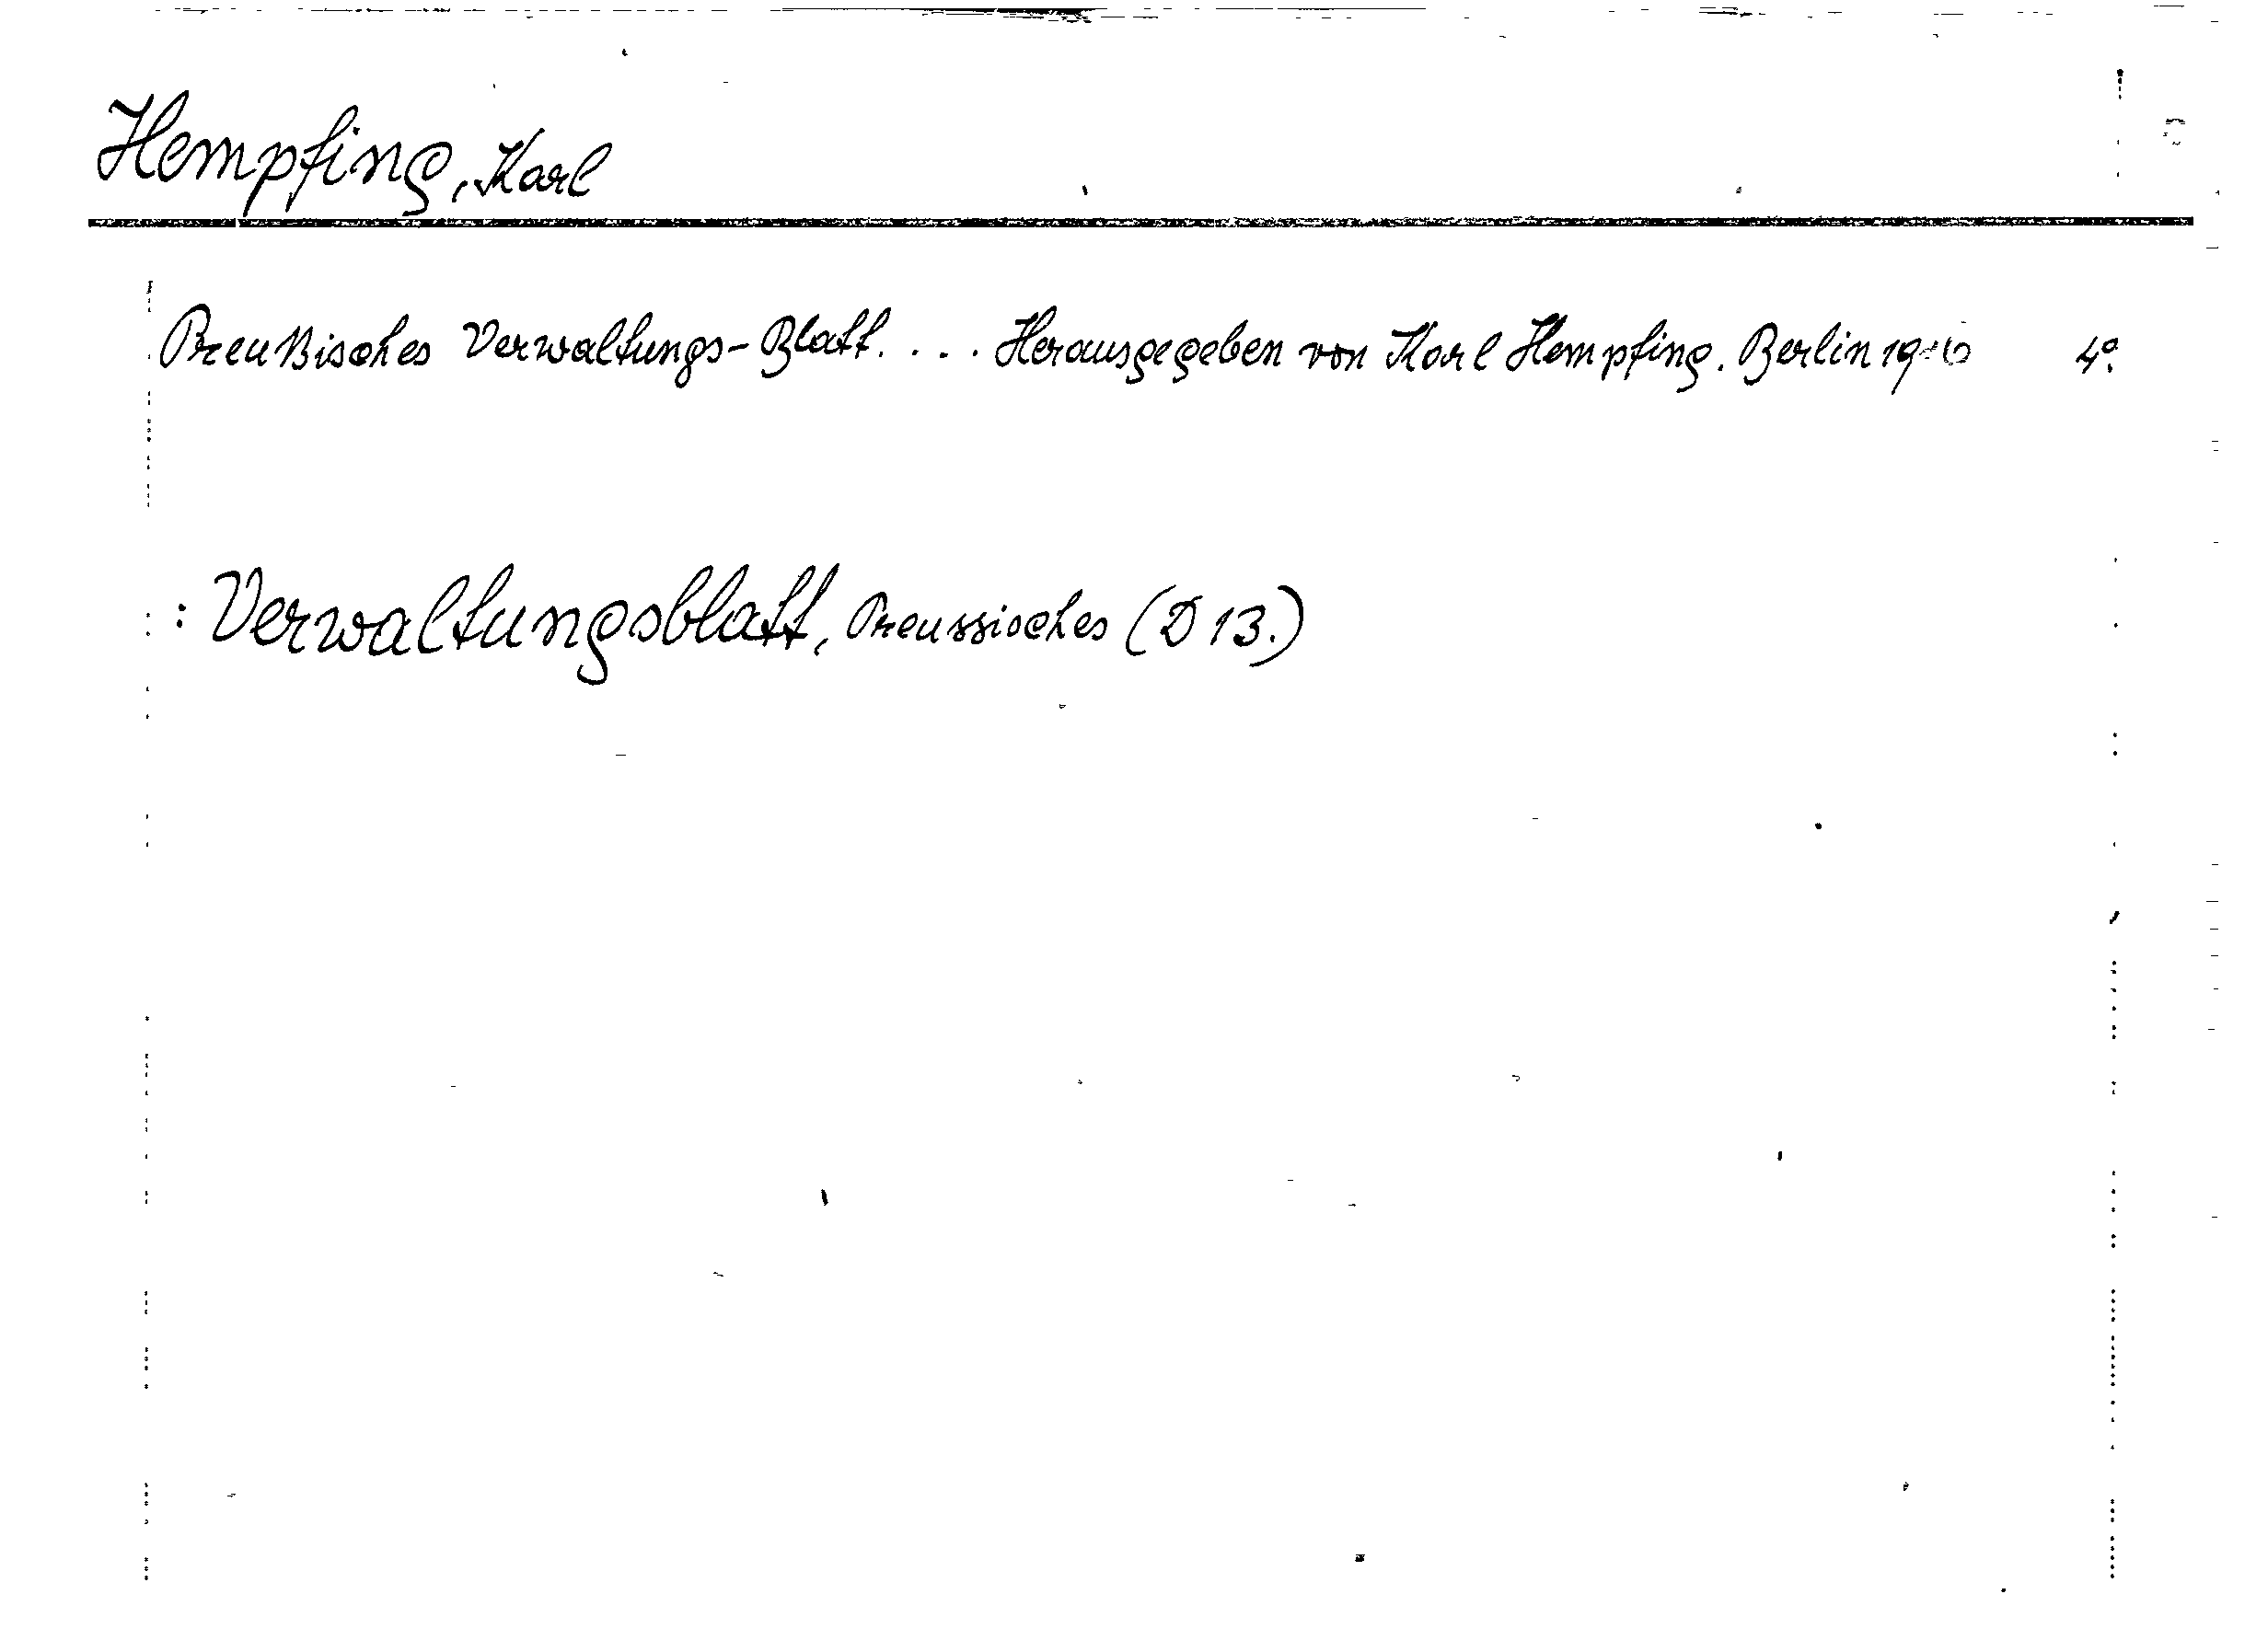 Hempfing, Karl
Preußisches Verwaltungs-Blatt. . . . Herausgegeben von Karl Hempfing. Berlin 4°.
: Verwaltungsblatt, Preussisches (D 13.)